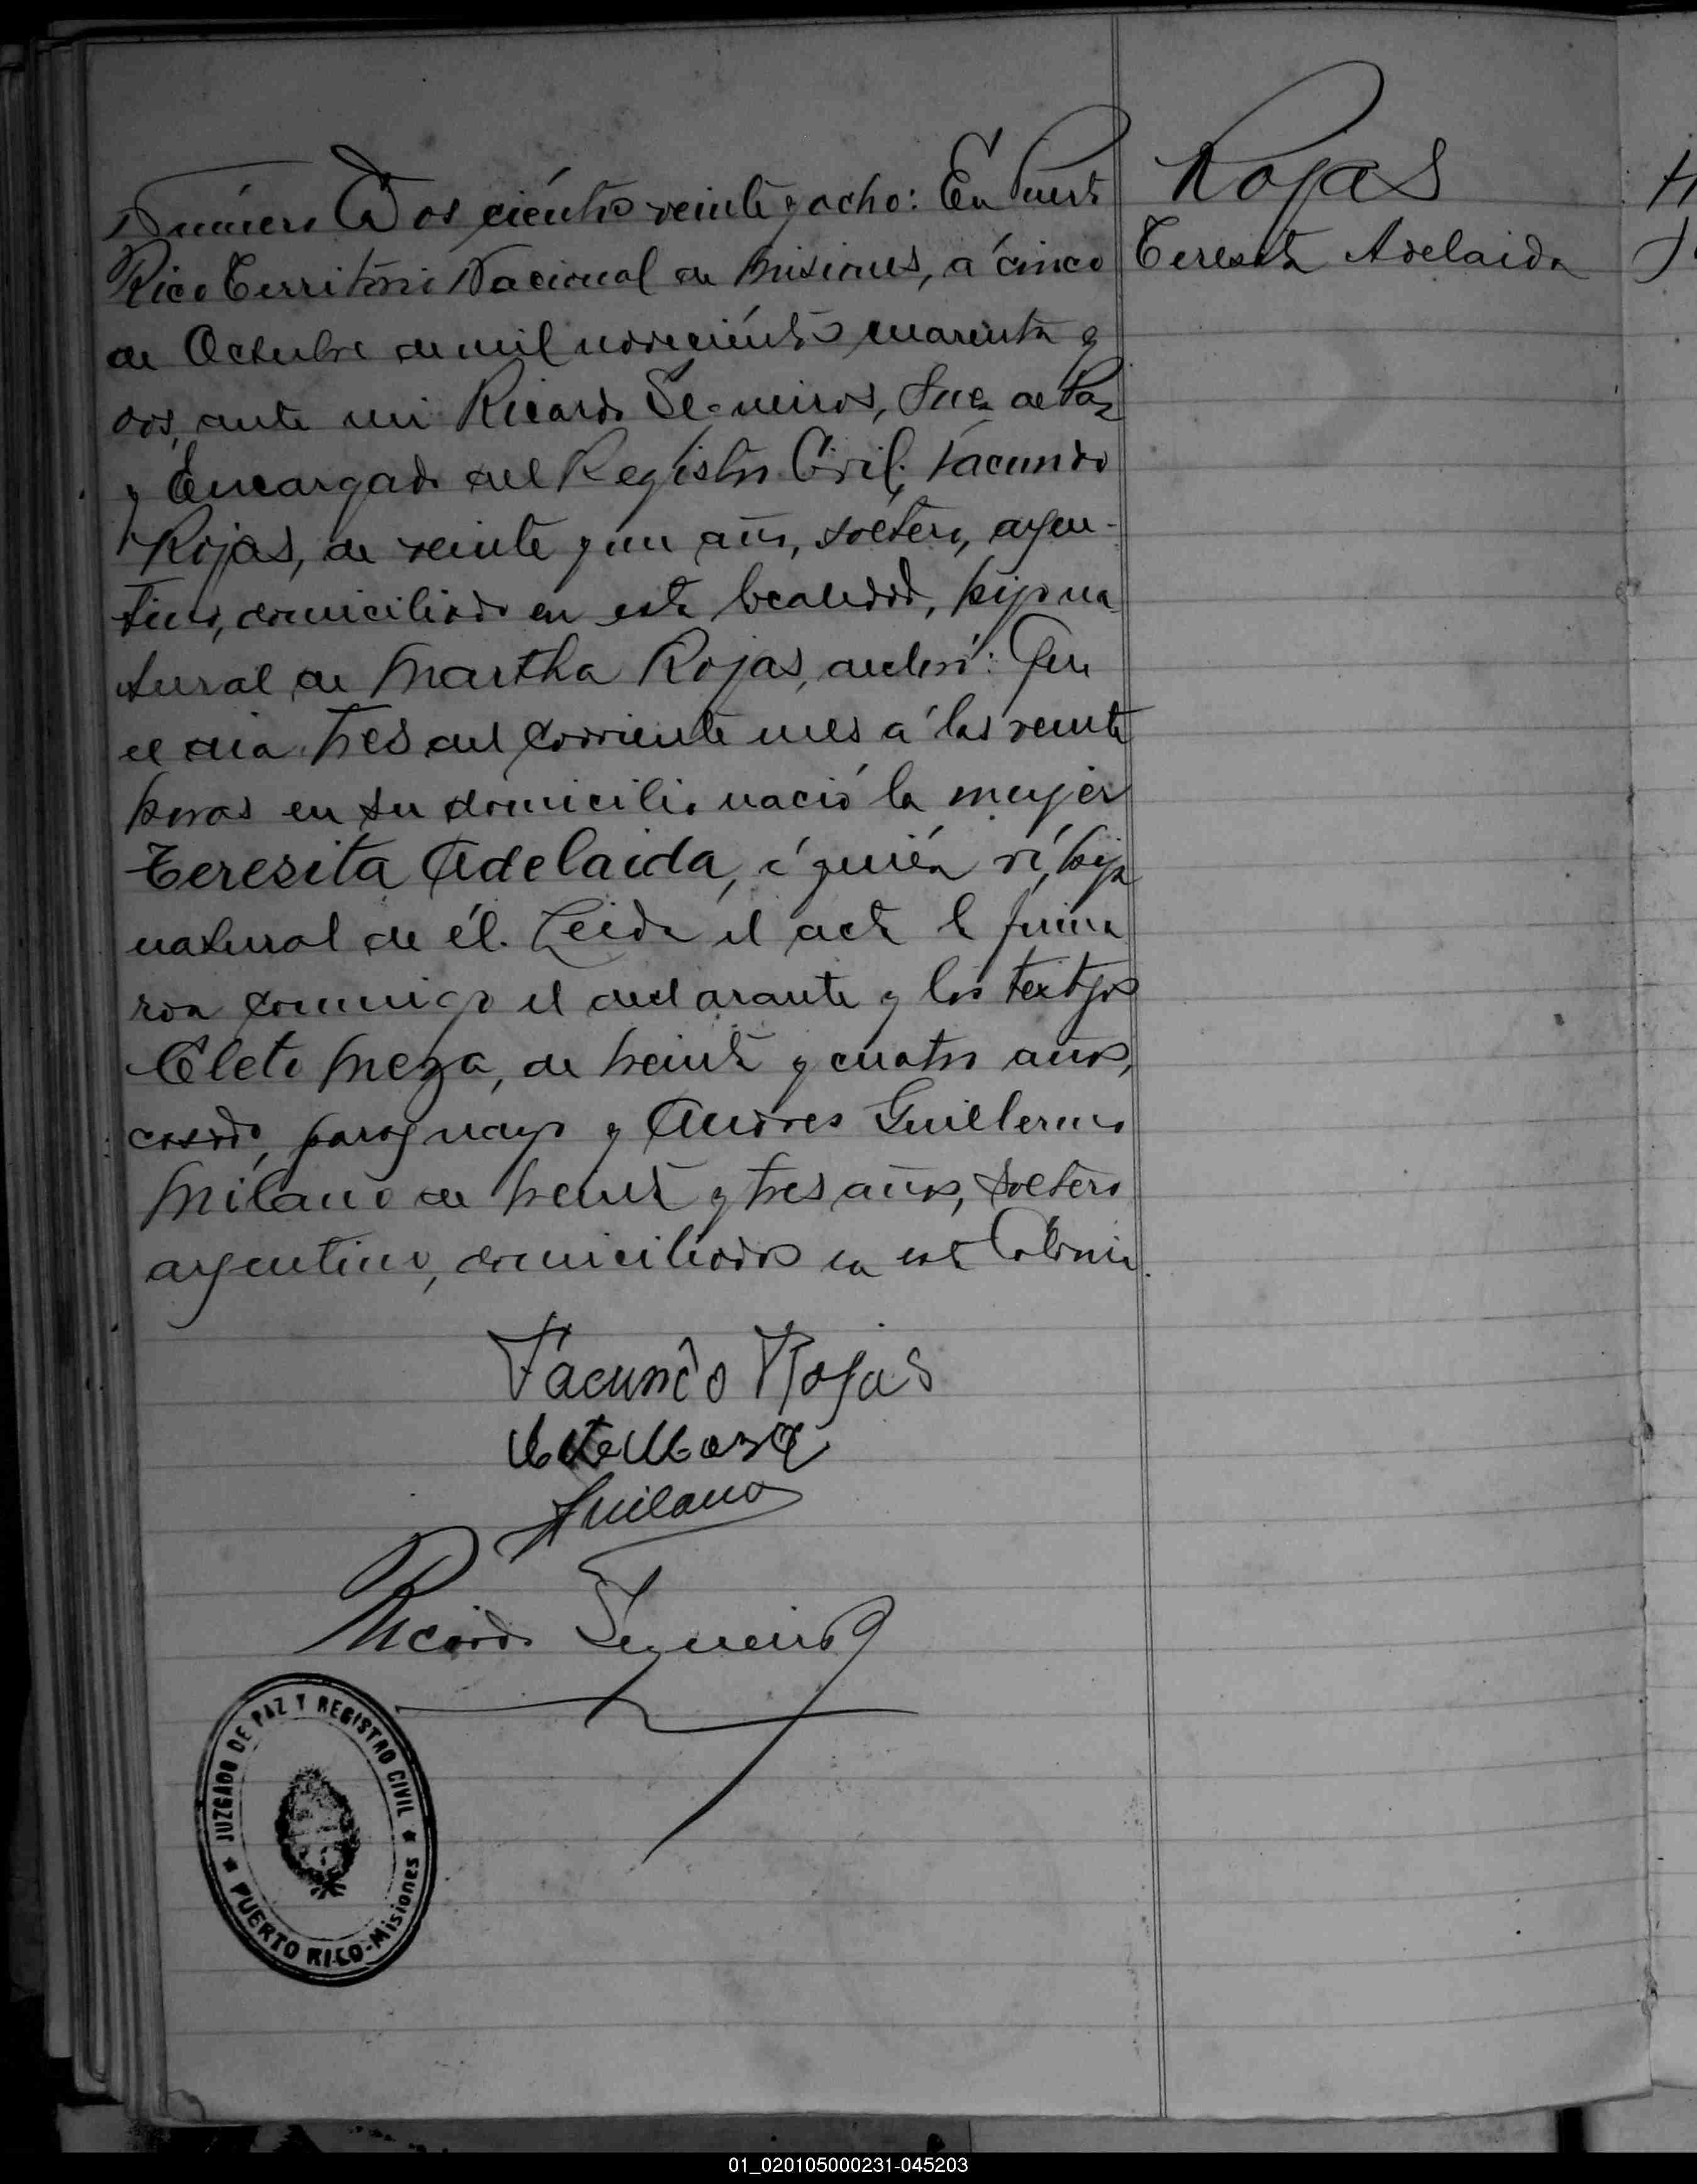 Número Dos ciento veinte y ocho: En Puerto
Rico Territorio Nacional de Misiones, a cinco
de Octubre de mil novecientos cuarenta y
dos, ante mi Ricardo Sequeiros, Juez de Paz
y Encargado del Registro Civil, Facundo
Rojas, de veinte y un años, soltero, argen-
tino, domiciliado en esta localidad, hijo na
tural de Martha Rojas, declaró: Que
el dia tres del corriente mes a las veinte
horas en su domicilio nació la mujer
Teresita Adelaida, a quién ví, hija
natural de él. Leida el acta la firma
ron conmigo el declarante y los testigos
Cleto Meza, de treinta y cuatro años,
casado, paraguayo y Andres Guillermo
Milano de treinta y tres años, soltero
argentino, domiciliados en esta Colonia.
Rojas
Teresita Adelaida
Facundo Rojas
Cleto Meza
Milano
Ricardo Sequeiros
JUZGADO DE PAZ Y REGISTRO CIVIL
★ PUERTO RICO-Misiones ★
01_020105000231-045203